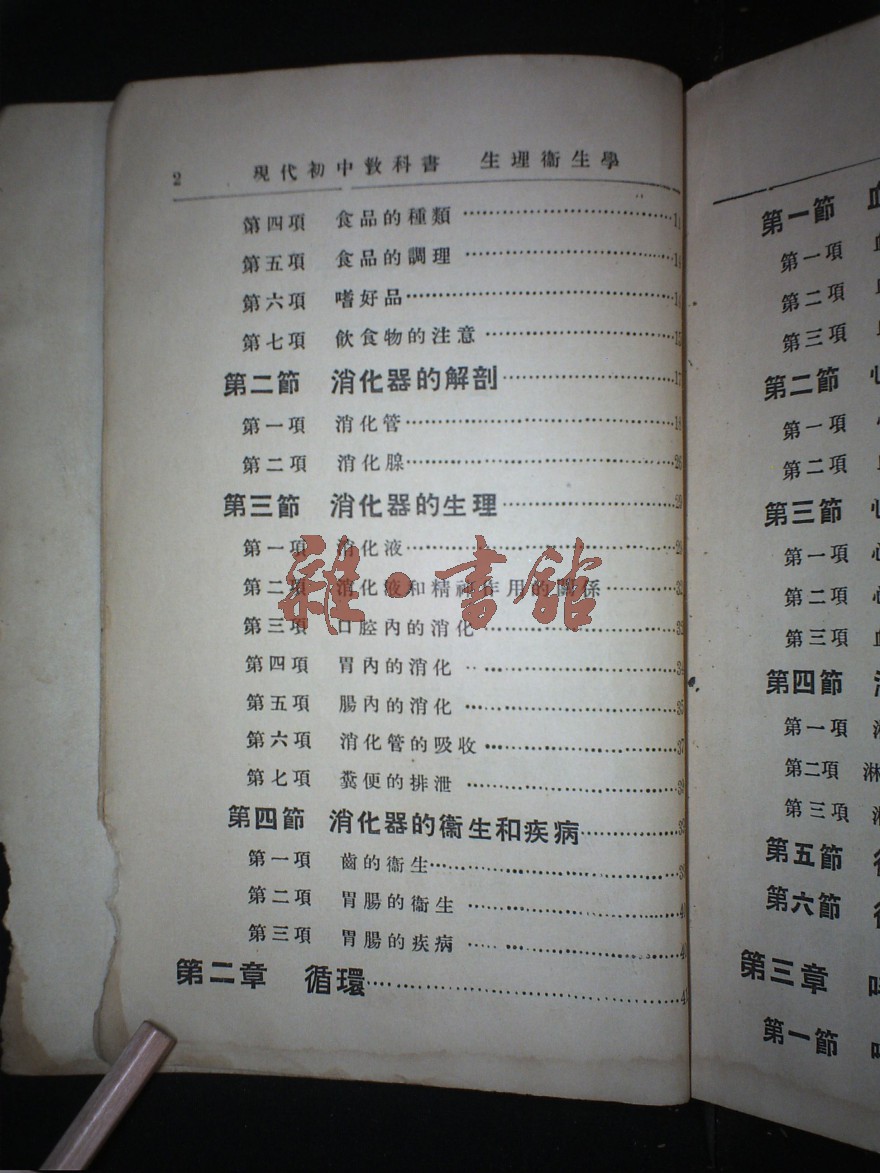 2 現代初中教科書 生理衞生學
第四項 食品的種類 ………… 11
第五項 食品的調理 …………
第六項 嗜好品 …………
第七項 飲食物的注意 ………… 15
第二節 消化器的解剖 ………… 17
第一項 消化管 ………… 18
第二項 消化腺 ………… 26
第三節 消化器的生理 ………… 29
第一項 消化液 ………… 29
第二項 消化液和精神作用的關係 ………… 32
第三項 口腔內的消化 ………… 33
第四項 胃內的消化 ………… 34
第五項 腸內的消化 ………… 35
第六項 消化管的吸收 ………… 37
第七項 糞便的排泄 ………… 38
第四節 消化器的衞生和疾病 …………
第一項 齒的衞生 …………
第二項 胃腸的衞生 …………
第三項 胃腸的疾病 …………
第二章 循環 …………
雜·書館
第一節 血
第一項
第二項
第三項
第二節 心
第一項
第二項
第三節 心
第一項 心
第二項 心
第三項 血
第四節
第一項
第二項 淋
第三項
第五節
第六節
第三章
第一節